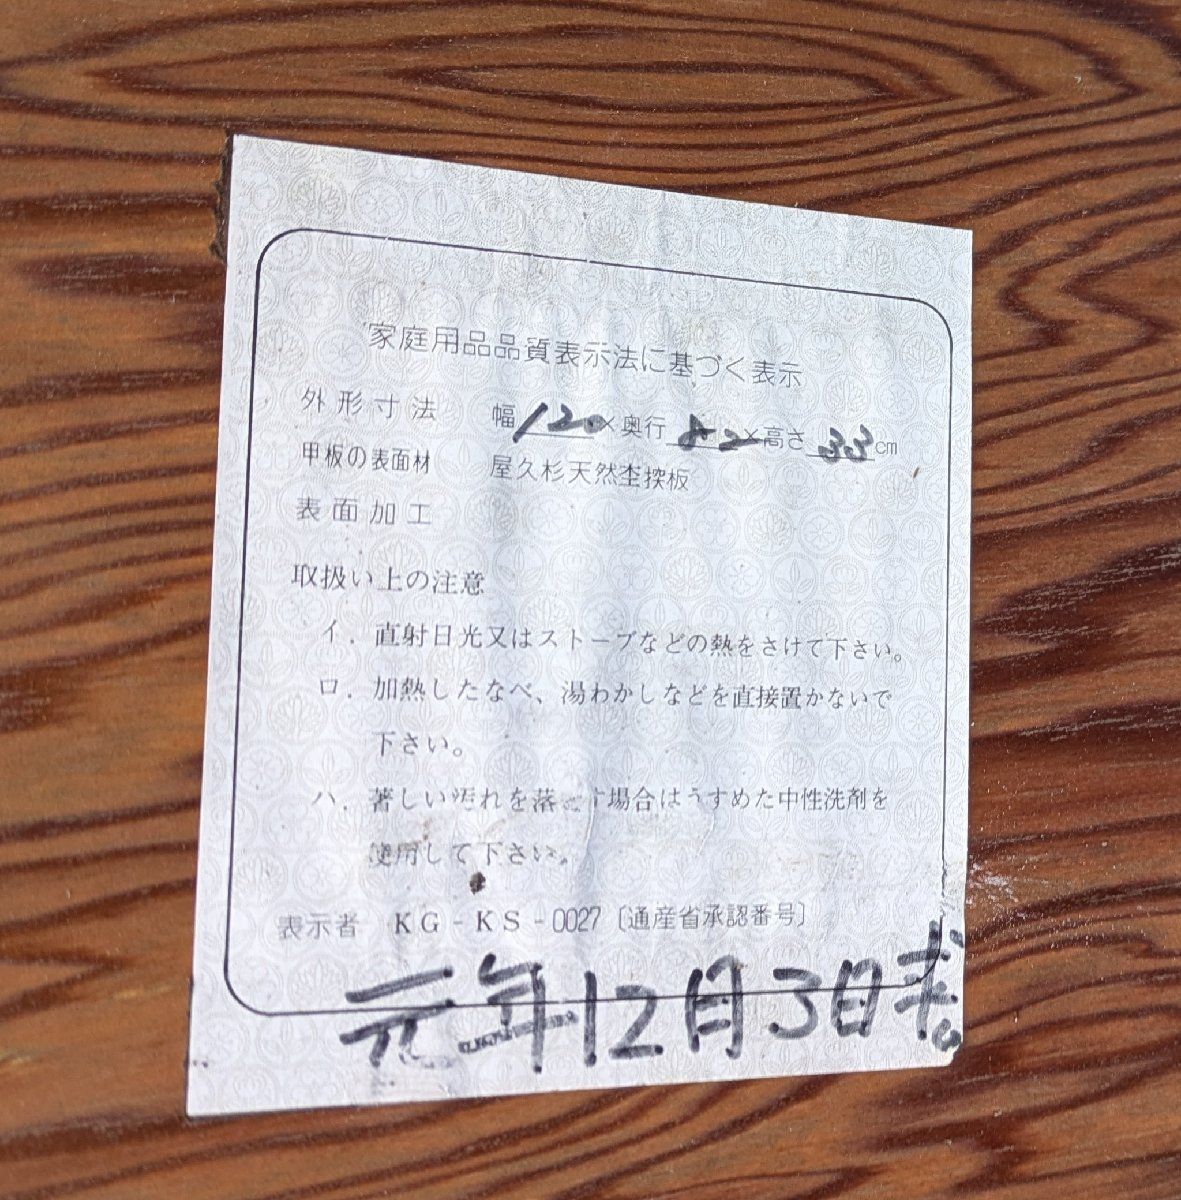 家庭用品品質表示法に基づく表示
外形寸法 幅120×奥行82×高さ33cm
甲板の表面材 屋久杉天然杢揬板
表面加工
取扱い上の注意
イ．直射日光又はストーブなどの熱をさけて下さい。
ロ．加熱したなべ、湯わかしなどを直接置かないで
下さい。
ハ．著しい汚れを落とす場合はうすめた中性洗剤を
使用して下さい。
表示者 KG-KS-0027〔通産省承認番号〕
元年12月3日